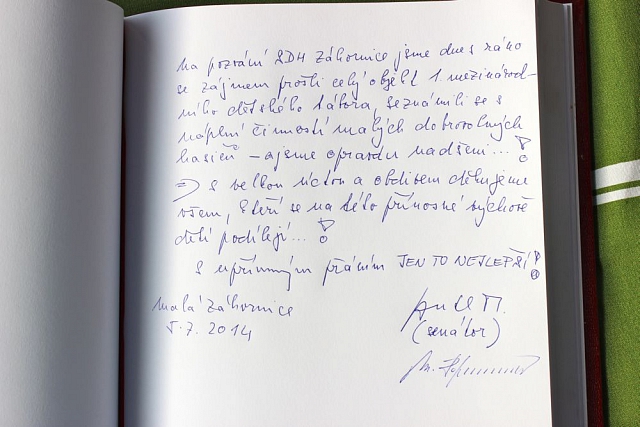 Na pozvání SDH Záhornice jsme dnes ráno
se zájmem prošli celý objekt 1. mezinárod-
ního dětského tábora, seznámili se s
náplní činnosti malých dobrovolných
hasičů – a jsme opravdu nadšeni...!
=> S velkou úctou a obdivem děkujeme
všem, kteří se na této přínosné výchově
dětí podílejí...!
S upřímným přáním JEN TO NEJLEPŠÍ!
Malá Záhornice
5.7. 2014
(senátor)